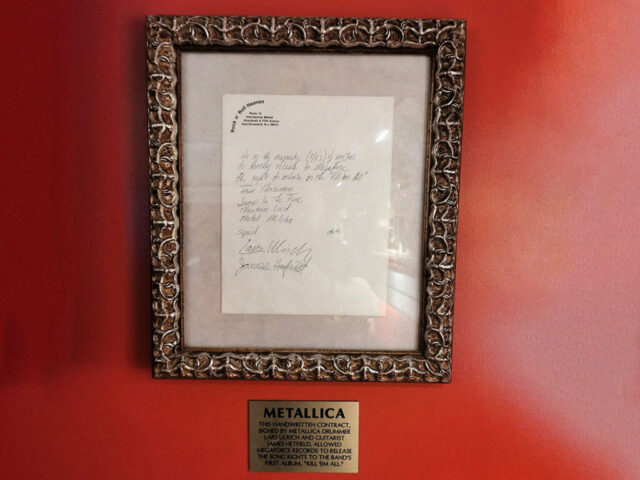 Rock n' Roll Heaven
Route 18
International Market
East Brunswick, N.J.
the majority writers
do hereby release to Megaforce
the right to release on the "Kill em All"
Four Horsemen
Jump In The Fire
Phantom Lord
Metal Militia
signed date
Lars Ulrich
James Hetfield
METALLICA
THIS HANDWRITTEN CONTRACT,
SIGNED BY METALLICA DRUMMER
LARS ULRICH AND GUITARIST
JAMES HETFIELD, ALLOWED
MEGAFORCE RECORDS TO RELEASE
THE SONG RIGHTS TO THE BAND'S
FIRST ALBUM, "KILL 'EM ALL."